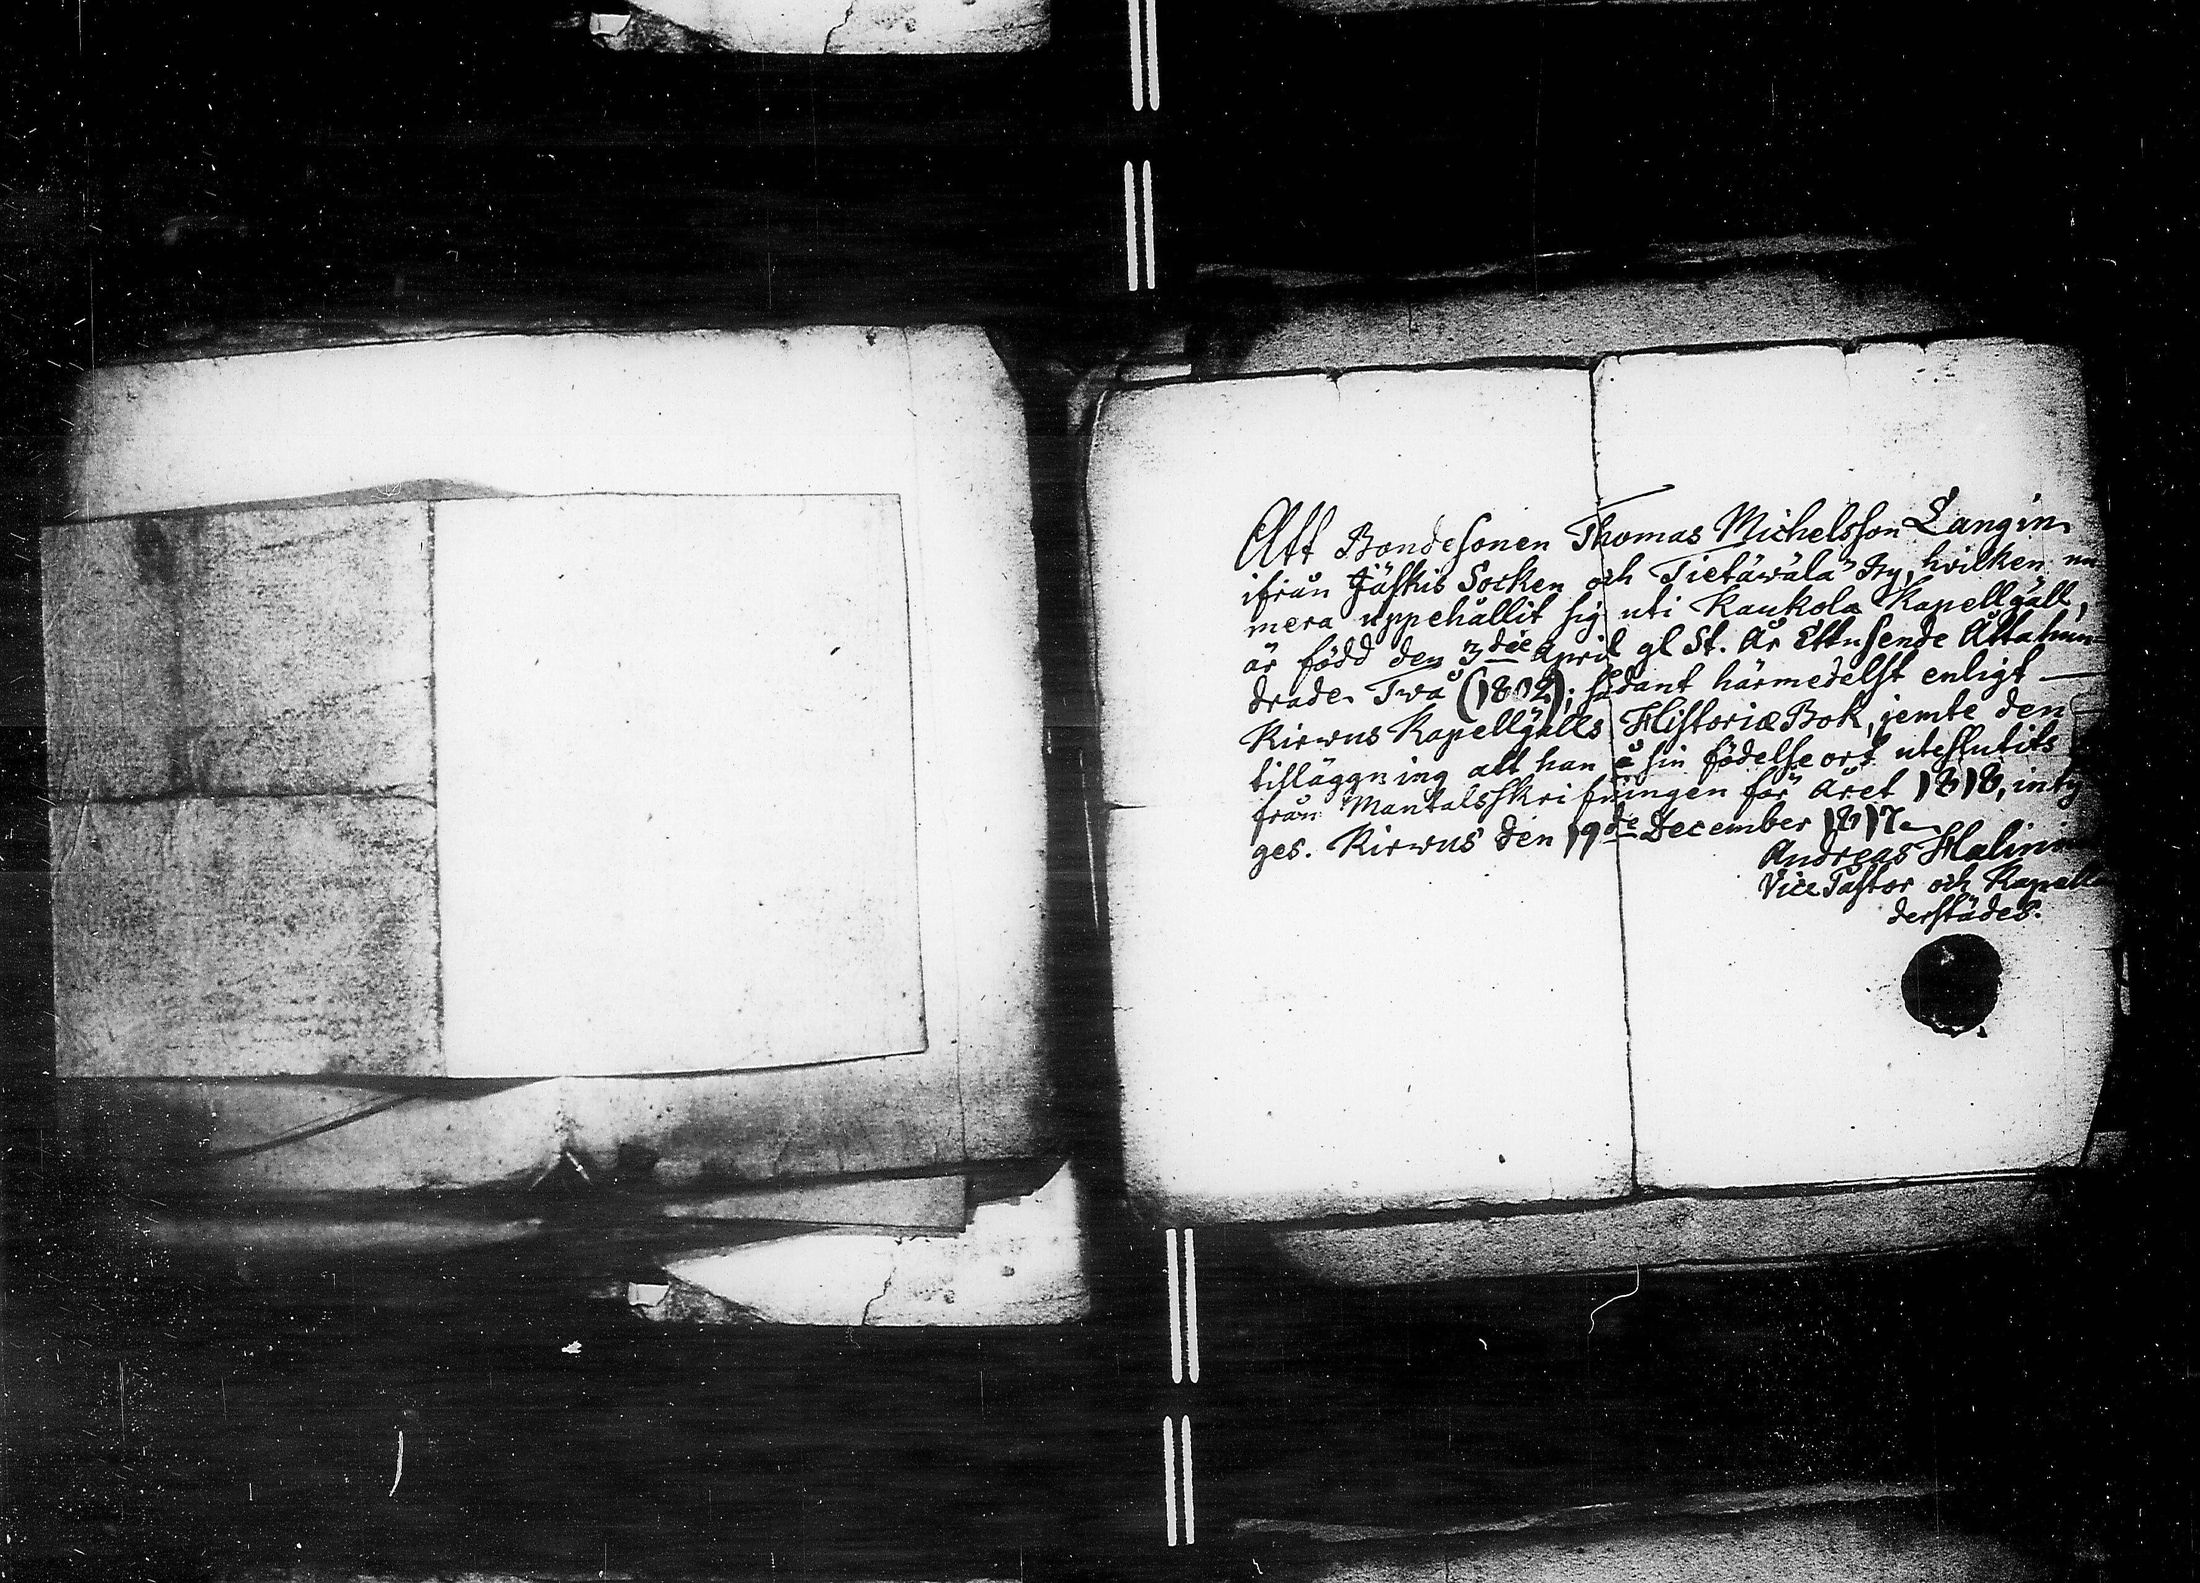 Att Bondesonen Thomas Michelsson Langin
ifrån Jäskis Socken och Tietäwälä By, hvilken nu
mera uppehållit sig uti Kaukola Kapellgäll,
är född den 3die April gl St. År Ettusende Åttahun-
drade Två (1802); sådant härmedelst enligt —
Kirwus Kapellgälls Historiæ Bok, jemte den
tilläggning att han å sin födelseort uteslutits
från Mantalsskrifningen för Året 1818, inty
ges. Kirwus den 19de December 1817.
Andreas Halin
Vice Pastor och Kapell
derstädes.